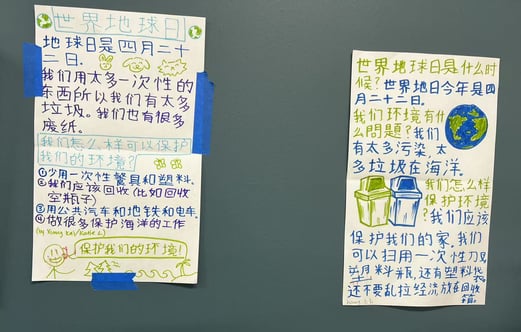 世界地球日
地球日是四月二十
二日.
我们用太多一次性的
东西所以我们有太多
垃圾。我们也有很多
废纸.
我们怎么样可以保护
我们的环境?
①少用一次性餐具和塑料.
②我们应该回收(比如回收
空瓶子)
③用公共汽车和地铁和电车.
④做很多保护海洋的工作
保护我们的环境!
世界地球日是什么时
候?世界地日今年是四
月二十二日.
我们环境有什
么問題?我们
有太多污染,太
多垃圾在海洋.
我们怎么样
保护环境
?我们应该
保护我们的家,我们
可以扫用一次性刀叉
塑料瓶,还有塑料袋
还不要乱拉经流放在回收
箱.